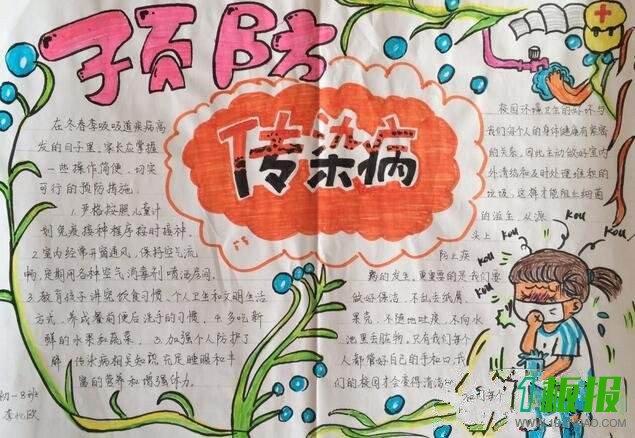 预防
传染病
在冬春季呼吸道疾病高
发的日子里，家长应掌握
一些操作简便、切实
可行的预防措施。
1.严格按照儿童计
划免疫接种程序按时接种。
2.室内经常开窗通风，保持空气流
畅，定期用各种空气消毒剂喷洒房间。
3.教育孩子讲究饮食习惯、个人卫生和文明生活
方式，养成餐前便后洗手的习惯。4.多吃新
鲜的水果和蔬菜。5.加强个人防护了
解，传染病相关知识，充足睡眠和丰
富的营养和增强体力。
初一8班
校园环境卫生的好坏与
我们每个人的身体健康有紧密
的关系。因此主动做好室内
外清洁和及时处理堆积的
垃圾，这样才能阻止细菌
的滋生，从源
头上
防止疾
病的发生。更重要的是我们要
做好保洁，不乱丢纸屑、
果壳，不随地吐痰，不向水
池里丢脏物，只有我们每个
人都管好自己的手和口，我
们的校园才会变得清洁
Kou
Kou
Kou
Kou
Kou
板报